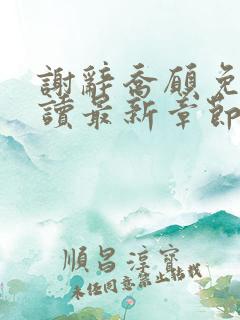 謝辭喬願免
讀最新章節
順昌淳寶
未经同意禁止转载